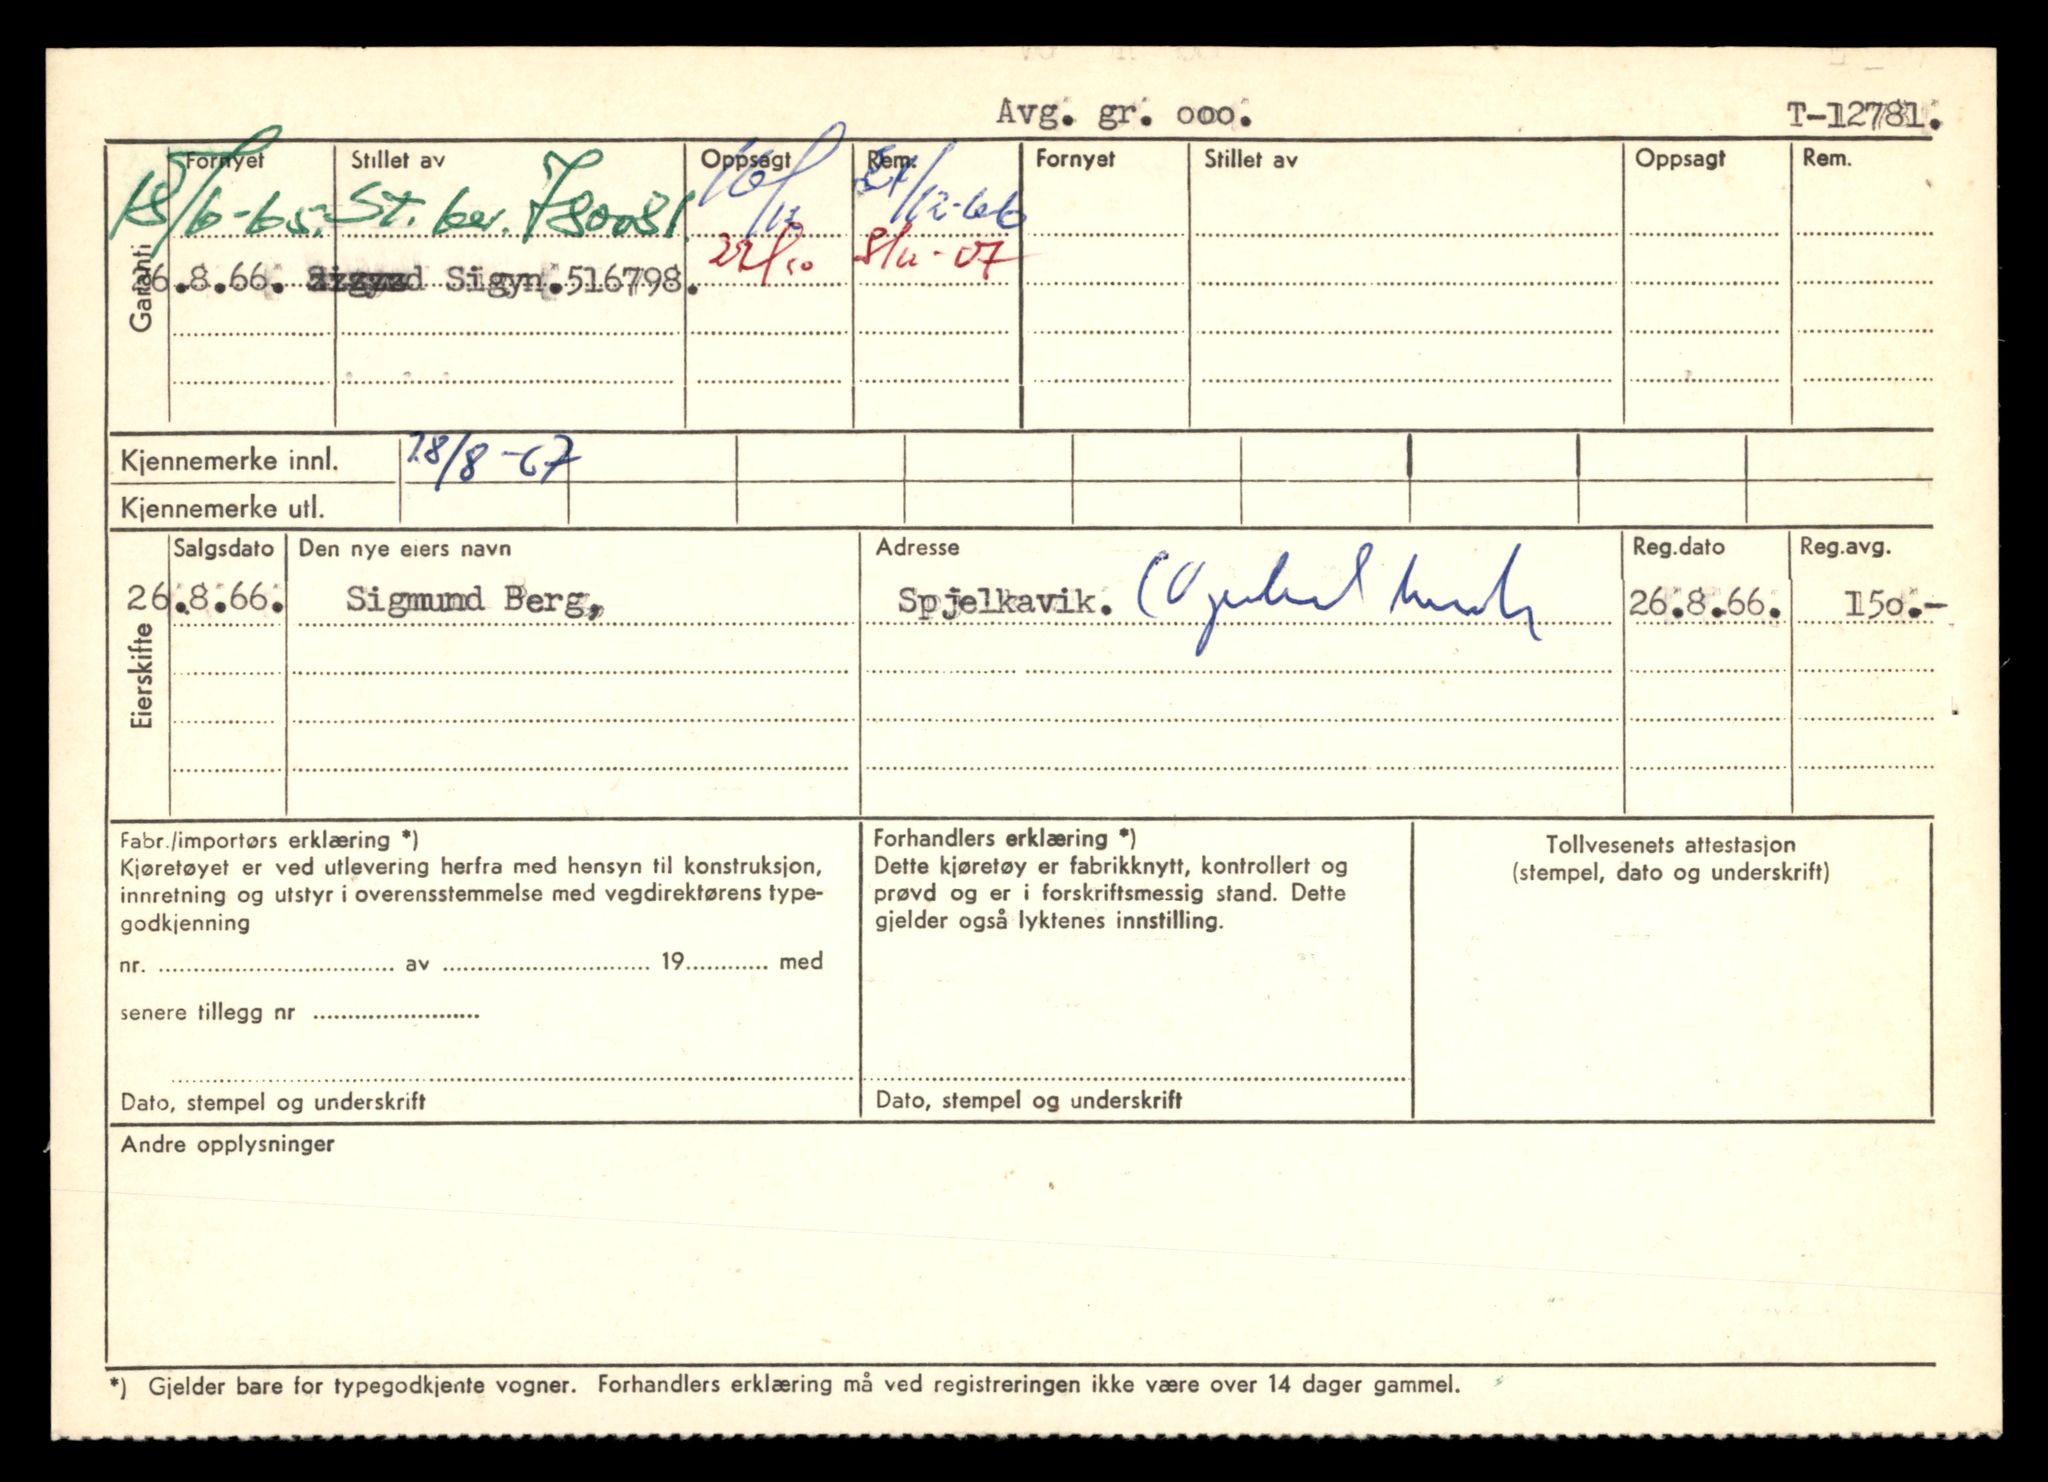 Avg. gr. ooo. T-12781.
Garanti
Fornyet Stillet av Oppsagt Rem. Fornyet Stillet av Oppsagt Rem.
18/6-65. St. ber. 780081. 16/12 27/12-66
26.8.66. Sigyn.516798. 22/10 8/11-67
Kjennemerke innl. 28/8-67
Kjennemerke utl.
Eierskifte
Salgsdato Den nye eiers navn Adresse Reg.dato Reg.avg.
26.8.66. Sigmund Berg, Spjelkavik. 26.8.66. 150.-
Fabr./importørs erklæring *)
Kjøretøyet er ved utlevering herfra med hensyn til konstruksjon,
innretning og utstyr i overensstemmelse med vegdirektørens type-
godkjenning
nr. .................. av .................. 19............ med
senere tillegg nr ..................
Dato, stempel og underskrift
Forhandlers erklæring *)
Dette kjøretøy er fabrikknytt, kontrollert og
prøvd og er i forskriftsmessig stand. Dette
gjelder også lyktenes innstilling.
Dato, stempel og underskrift
Tollvesenets attestasjon
(stempel, dato og underskrift)
Andre opplysninger
*) Gjelder bare for typegodkjente vogner. Forhandlers erklæring må ved registreringen ikke være over 14 dager gammel.